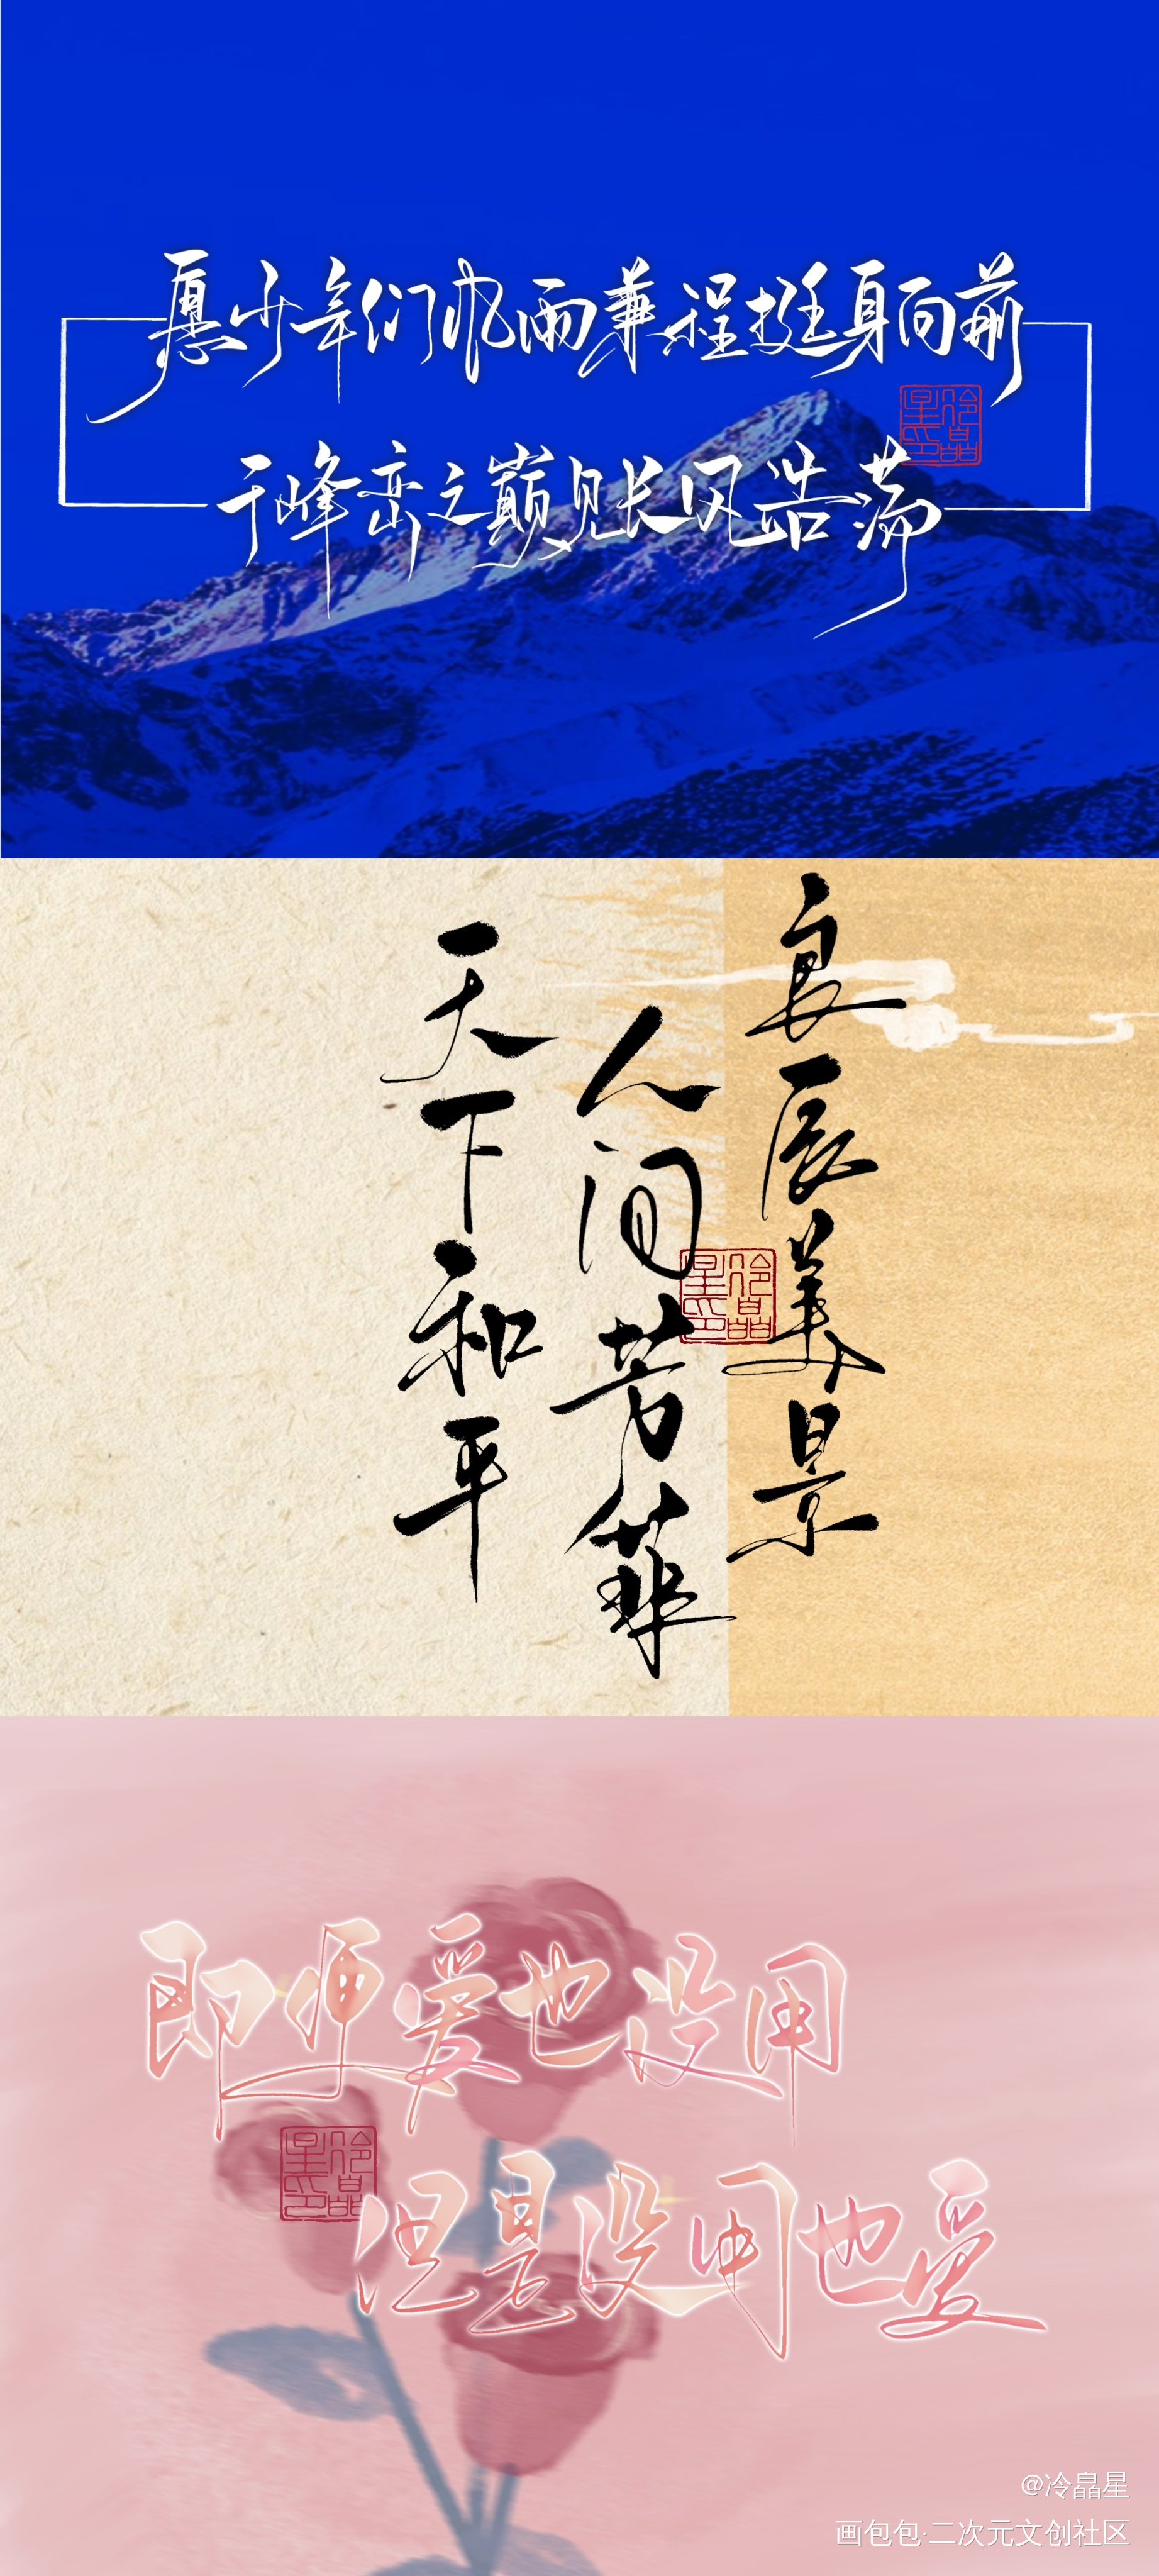 愿少年们风雨兼程挺身向前
于峰峦之巅见长风浩荡
冷晶星印
良辰美景
人间芳菲
天下和平
冷晶星印
即便爱也没用
但是没用也爱
冷晶星印
@冷晶星
画包包·二次元文创社区